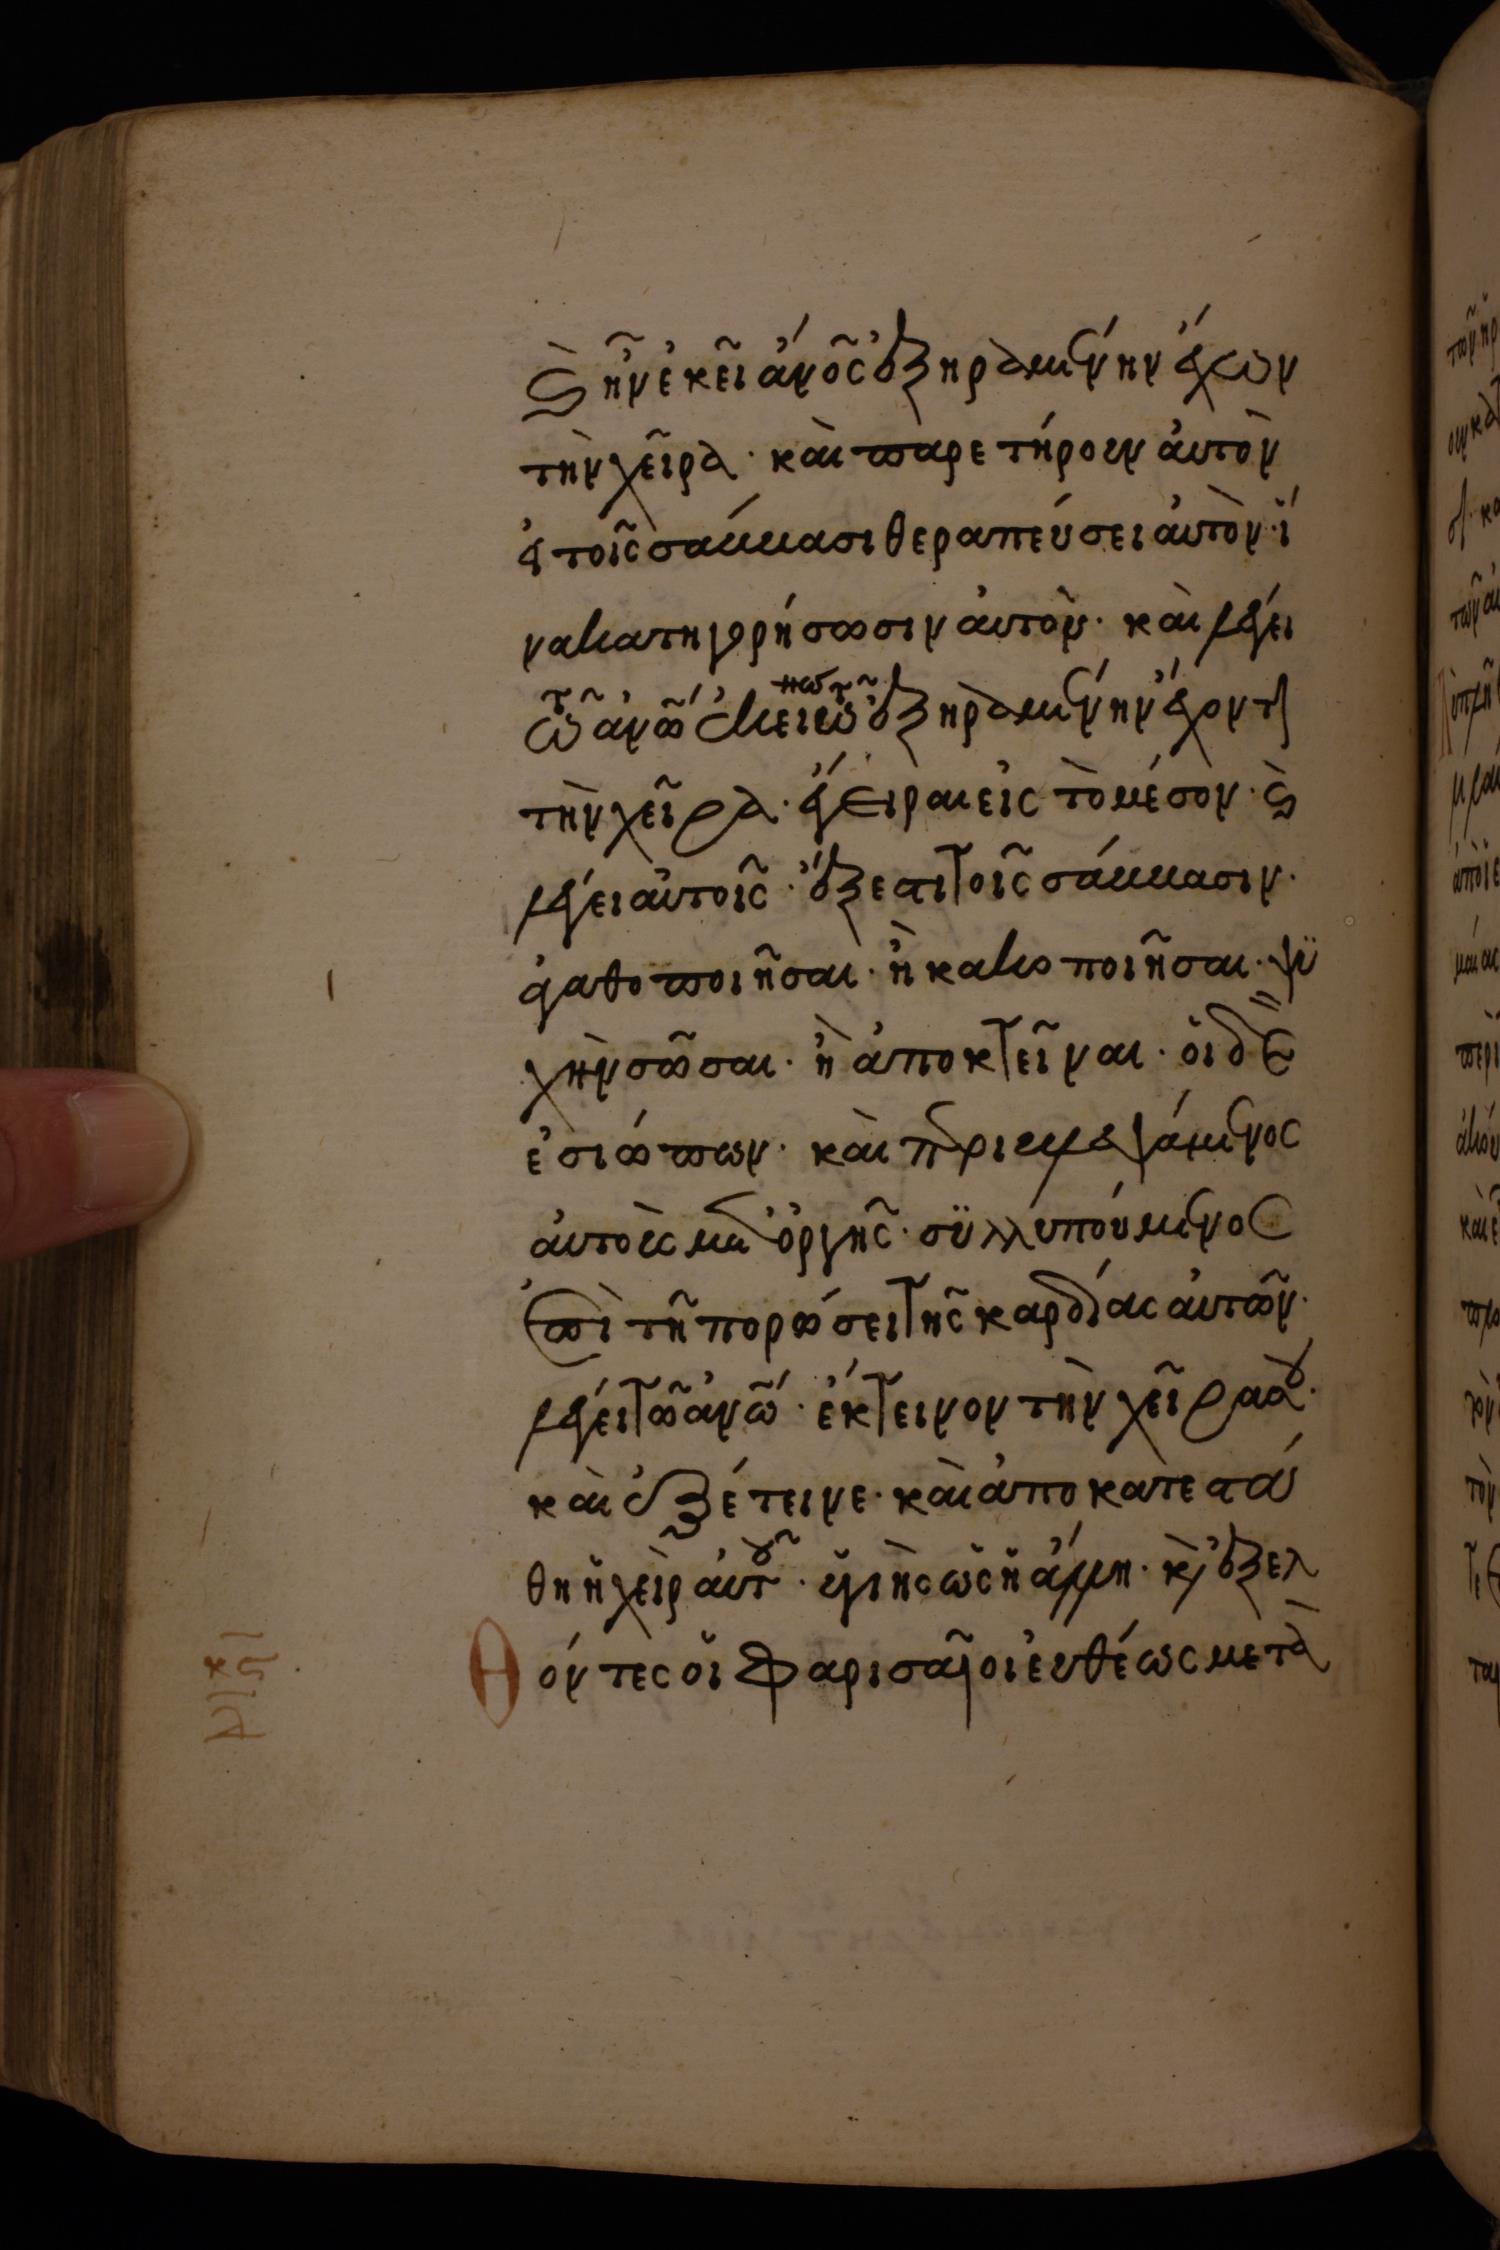 καὶ ἦν ἐκεῖ ἄνο̃ς ἐξηραμμένην ἔχων
τὴν χεῖρα· καὶ παρετήρουν αὐτὸν
εἰ τοῖς σάββασι θεραπεύσει αὐτὸν· ἵ
να κατηγορήσωσιν αὐτοῦ· καὶ λέγει
τῶ ἀνω̃ ἐκείνω τῶ ἐξηραμμένην ἔχοντι
τὴν χεῖρα· ἔγειραι εἰς τὸ μέσον· καὶ
λέγει αὐτοῖς· ἔξεστι τοῖς σάββασιν·
ἀγαθοποιῆσαι· ἢ κακοποιῆσαι· ψυ
χὴν σῶσαι· ἢ ἀποκτεῖναι· οἱ δὲ
ἐσιώπων· καὶ περιβλεψάμενος
αὐτοὺς μετ' ὀργῆς· συλλυπούμενος
ἐπὶ τῆ πορώσει τῆς καρδίας αὐτῶν·
λέγει τῶ ἀνω̃· ἔκτεινον τὴν χεῖρα σου·
καὶ ἐξέτεινε· καὶ ἀποκατεστά
θη ἡ χεὶρ αὐτοῦ· ὑγιὴς ὡς ἡ ἄλλη· καὶ ἐξελ
θόντες οἱ Φαρισαῖοι εὐθέως μετὰ